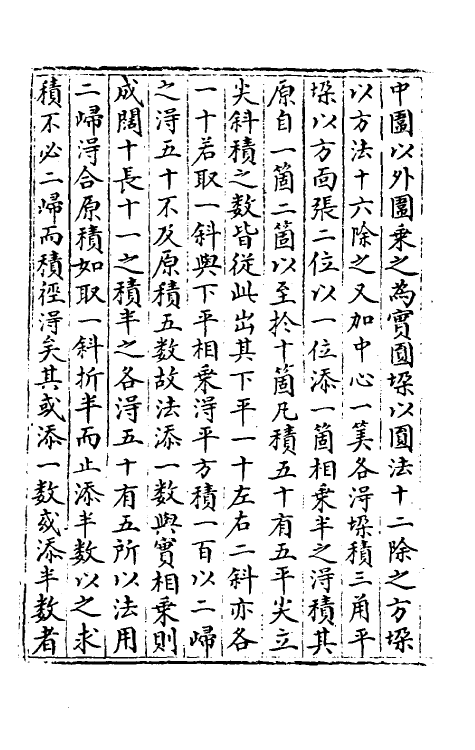 中圍以外圍乗之為實圓垛以圓法十二除之方垛
以方法十六除之又加中心一筭各淂垛積三角平
垛以方面張二位以一位添一箇相乗半之淂積其
原自一箇二箇以至扵十箇凡積五十有五平尖立
尖斜積之数皆從此出其下平一十左右二斜亦各
一十若取一斜與下平相乗淂平方積一百以二歸
之淂五十不及原積五数故法添一数與實相乗則
成闊十長十一之積半之各淂五十有五所以法用
二歸淂合原積如取一斜折半而止添半数以之求
積不必二歸而積徑淂矣其或添一数或添半数者